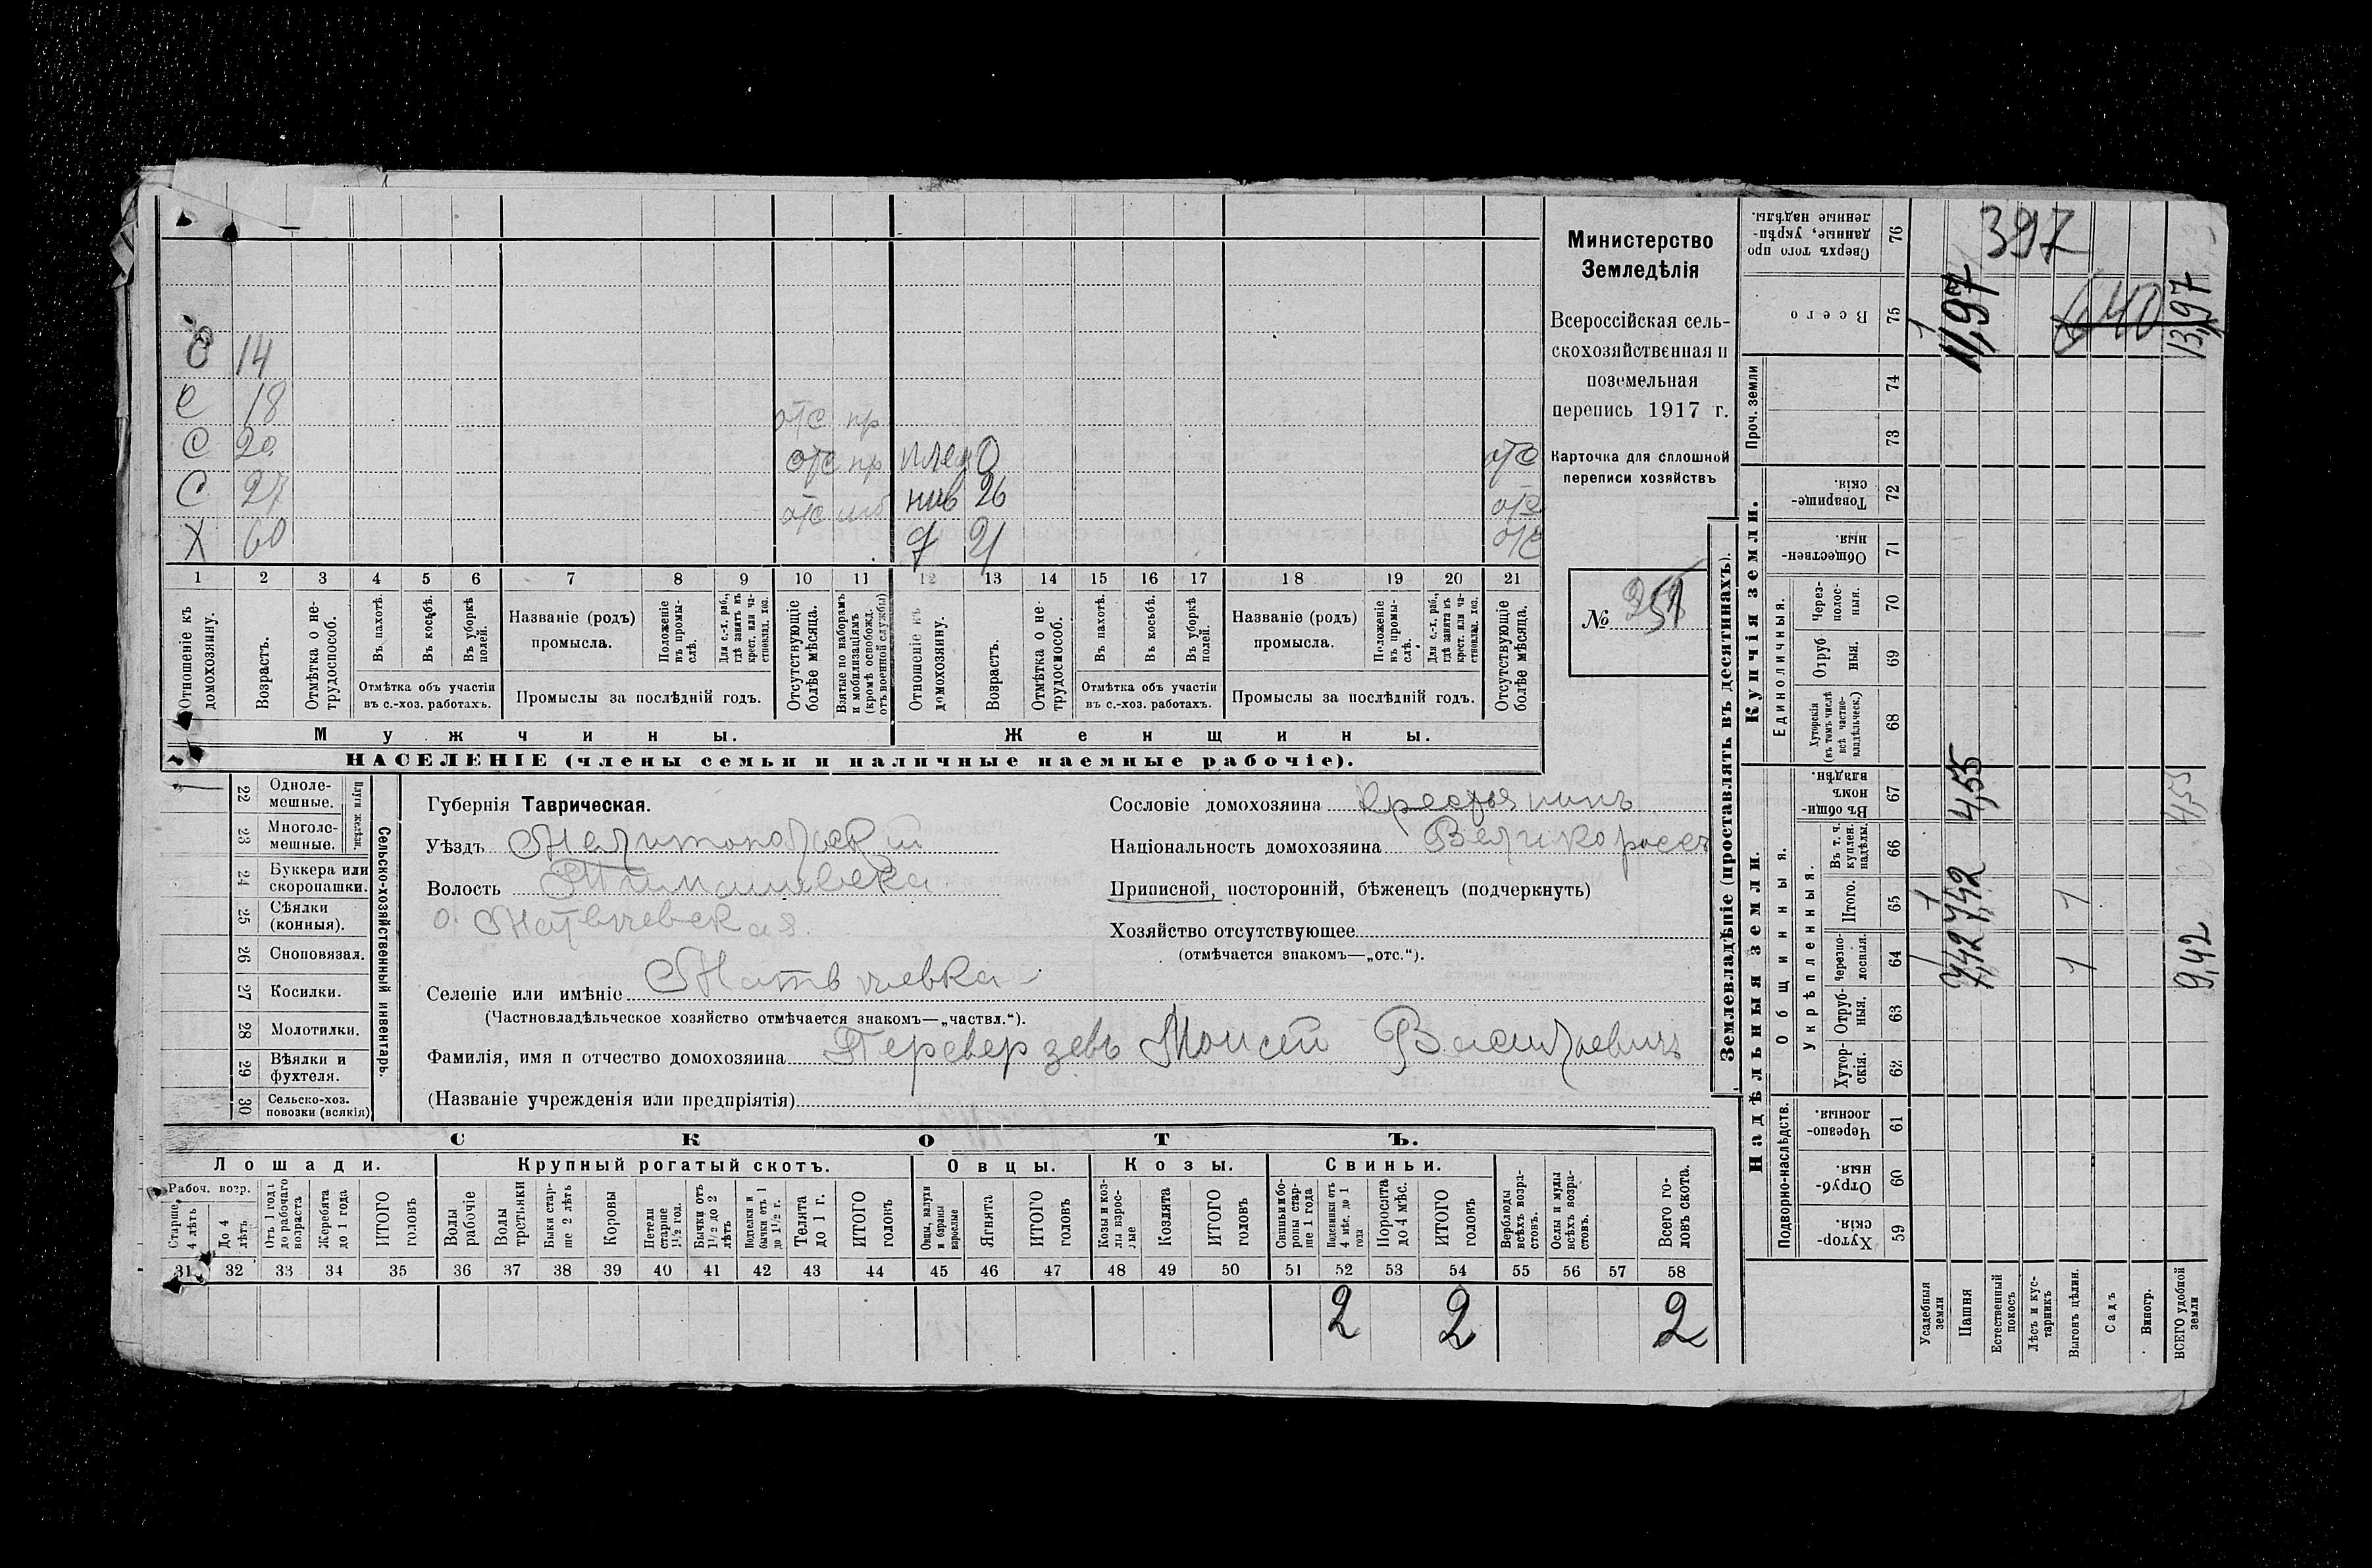 Министерство
Земледѣлія
Всероссійская сель-
скохозяйственная и
поземельная
перепись 1917 г.
Карточка для сплошной
переписи хозяйствъ
№ 351
С 14
С 18 отс пр
С 20 отс пр отс
С 27 отс нив 26 отс
Х 60 21 отс
1 2 3 4 5 6 7 8 9 10 11 12 13 14 15 16 17 18 19 20 21
Отношеніе къ домохозяину.
Возрастъ.
Отмѣтка о не-трудоспособ.
Въ пахотѣ.
Въ косьбѣ.
Въ уборкѣ полей.
Отмѣтка объ участіи
въ с.-хоз. работахъ.
Названіе (родъ)
промысла.
Положеніе въ промы-слѣ.
Для с.-х. раб., гдѣ занятъ въ крест. или ча-стновлад. хоз.
Промыслы за послѣдній годъ.
Отсутствующіе болѣе мѣсяца.
Взятые по наборамъ и мобилизаціямъ (кромѣ освобожд. отъ военной службы)
Отношеніе къ домохозяину.
Возрастъ.
Отмѣтка о не-трудоспособ.
Въ пахотѣ.
Въ косьбѣ.
Въ уборкѣ полей.
Отмѣтка объ участіи
въ с.-хоз. работахъ.
Названіе (родъ)
промысла.
Положеніе въ промы-слѣ.
Для с.-х. раб., гдѣ занятъ въ крест. или ча-стновлад. хоз.
Промыслы за послѣдній годъ.
Отсутствующіе болѣе мѣсяца.
Мужчины.
Женщины.
НАСЕЛЕНІЕ (члены семьи и наличные наемные рабочіе).
Сельско-хозяйственный инвентарь.
Плуги желѣзн.
22 Одноле-мешные.
23 Многоле-мешные.
24 Буккера или скоропашки.
25 Сѣялки (конныя).
26 Сноповязал.
27 Косилки.
28 Молотилки.
29 Вѣялки и фухтеля.
30 Сельско-хоз. повозки (всякія)
Губернія Таврическая.
Уѣздъ Мелитопольскій
Волость Тимашевка
о. Матвѣевская
Селеніе или имѣніе Матвѣевка
(Частновладѣльческое хозяйство отмѣчается знакомъ—„частвл.“).
Фамилія, имя и отчество домохозяина Переверзевъ Моисей Васильевичъ
(Названіе учрежденія или предпріятія)
Сословіе домохозяина Крестьянинъ
Національность домохозяина Великороссъ
Приписной, посторонній, бѣженецъ (подчеркнуть)
Хозяйство отсутствующее
(отмѣчается знакомъ—„отс.“).
СКОТЪ.
Лошади.
Рабоч. возр.
Старше 4 лѣтъ
До 4 лѣтъ
Отъ 1 года до рабочаго возраста
Жеребята до 1 года
ИТОГО головъ
Крупный рогатый скотъ.
Волы рабочіе
Волы третьяки
Быки стар-ше 2 лѣтъ
Коровы
Нетели старше 1½ год.
Бычки отъ 1½ до 2 лѣтъ
Подтелки и бычки отъ 1 до 1½ г.
Телята до 1 г.
ИТОГО головъ
Овцы.
Овцы, валухи и бараны взрослые
Ягнята
ИТОГО головъ
Козы.
Козы и коз-лы взрос-лые
Козлята
ИТОГО головъ
Свиньи.
Свиньи и бо-ровы стар-ше 1 года
Подсвинки отъ 4 мѣс. до 1 года
Поросята до 4 мѣс.
ИТОГО головъ
Верблюды всѣхъ возра-стовъ.
Ослы и мулы всѣхъ возра-стовъ.
Всего го-ловъ скота.
31 32 33 34 35 36 37 38 39 40 41 42 43 44 45 46 47 48 49 50 51 52 53 54 55 56 57 58
2 2 2
Землевладѣніе (проставлять въ десятинахъ).
Сверхъ того про-данные, укрѣп-ленные надѣлы. 76 397
Всего 75 1 11,97 13,97
Проч. земли 74
73
Купчія земли.
Товарище-скія. 72
Обществен-ныя. 71
Единоличныя.
Через-полос-ныя. 70
Отруб ныя. 69
Хуторскія (въ томъ числѣ всѣ частно-владѣльческ.) 68
Надѣльныя земли.
Общинныя.
Въ общин-номъ владѣн. 67 4,55 4,55
Укрѣпленныя.
Въ т. ч. куплен. надѣлы. 66
Итого. 65 1 7,42 1
Черезпо-лосныя. 64 1 7,42 1 9,42
Отруб-ныя. 63
Хутор-скія. 62
Подворно-наслѣдств.
Черезпо-лосныя. 61
Отруб-ныя. 60
Хутор-скія. 59
Усадебныя земли
Пашня
Естественный покосъ
Лѣсъ и кус-тарникъ
Выгонъ цѣлин.
Садъ
Виногр.
ВСЕГО удобной земли